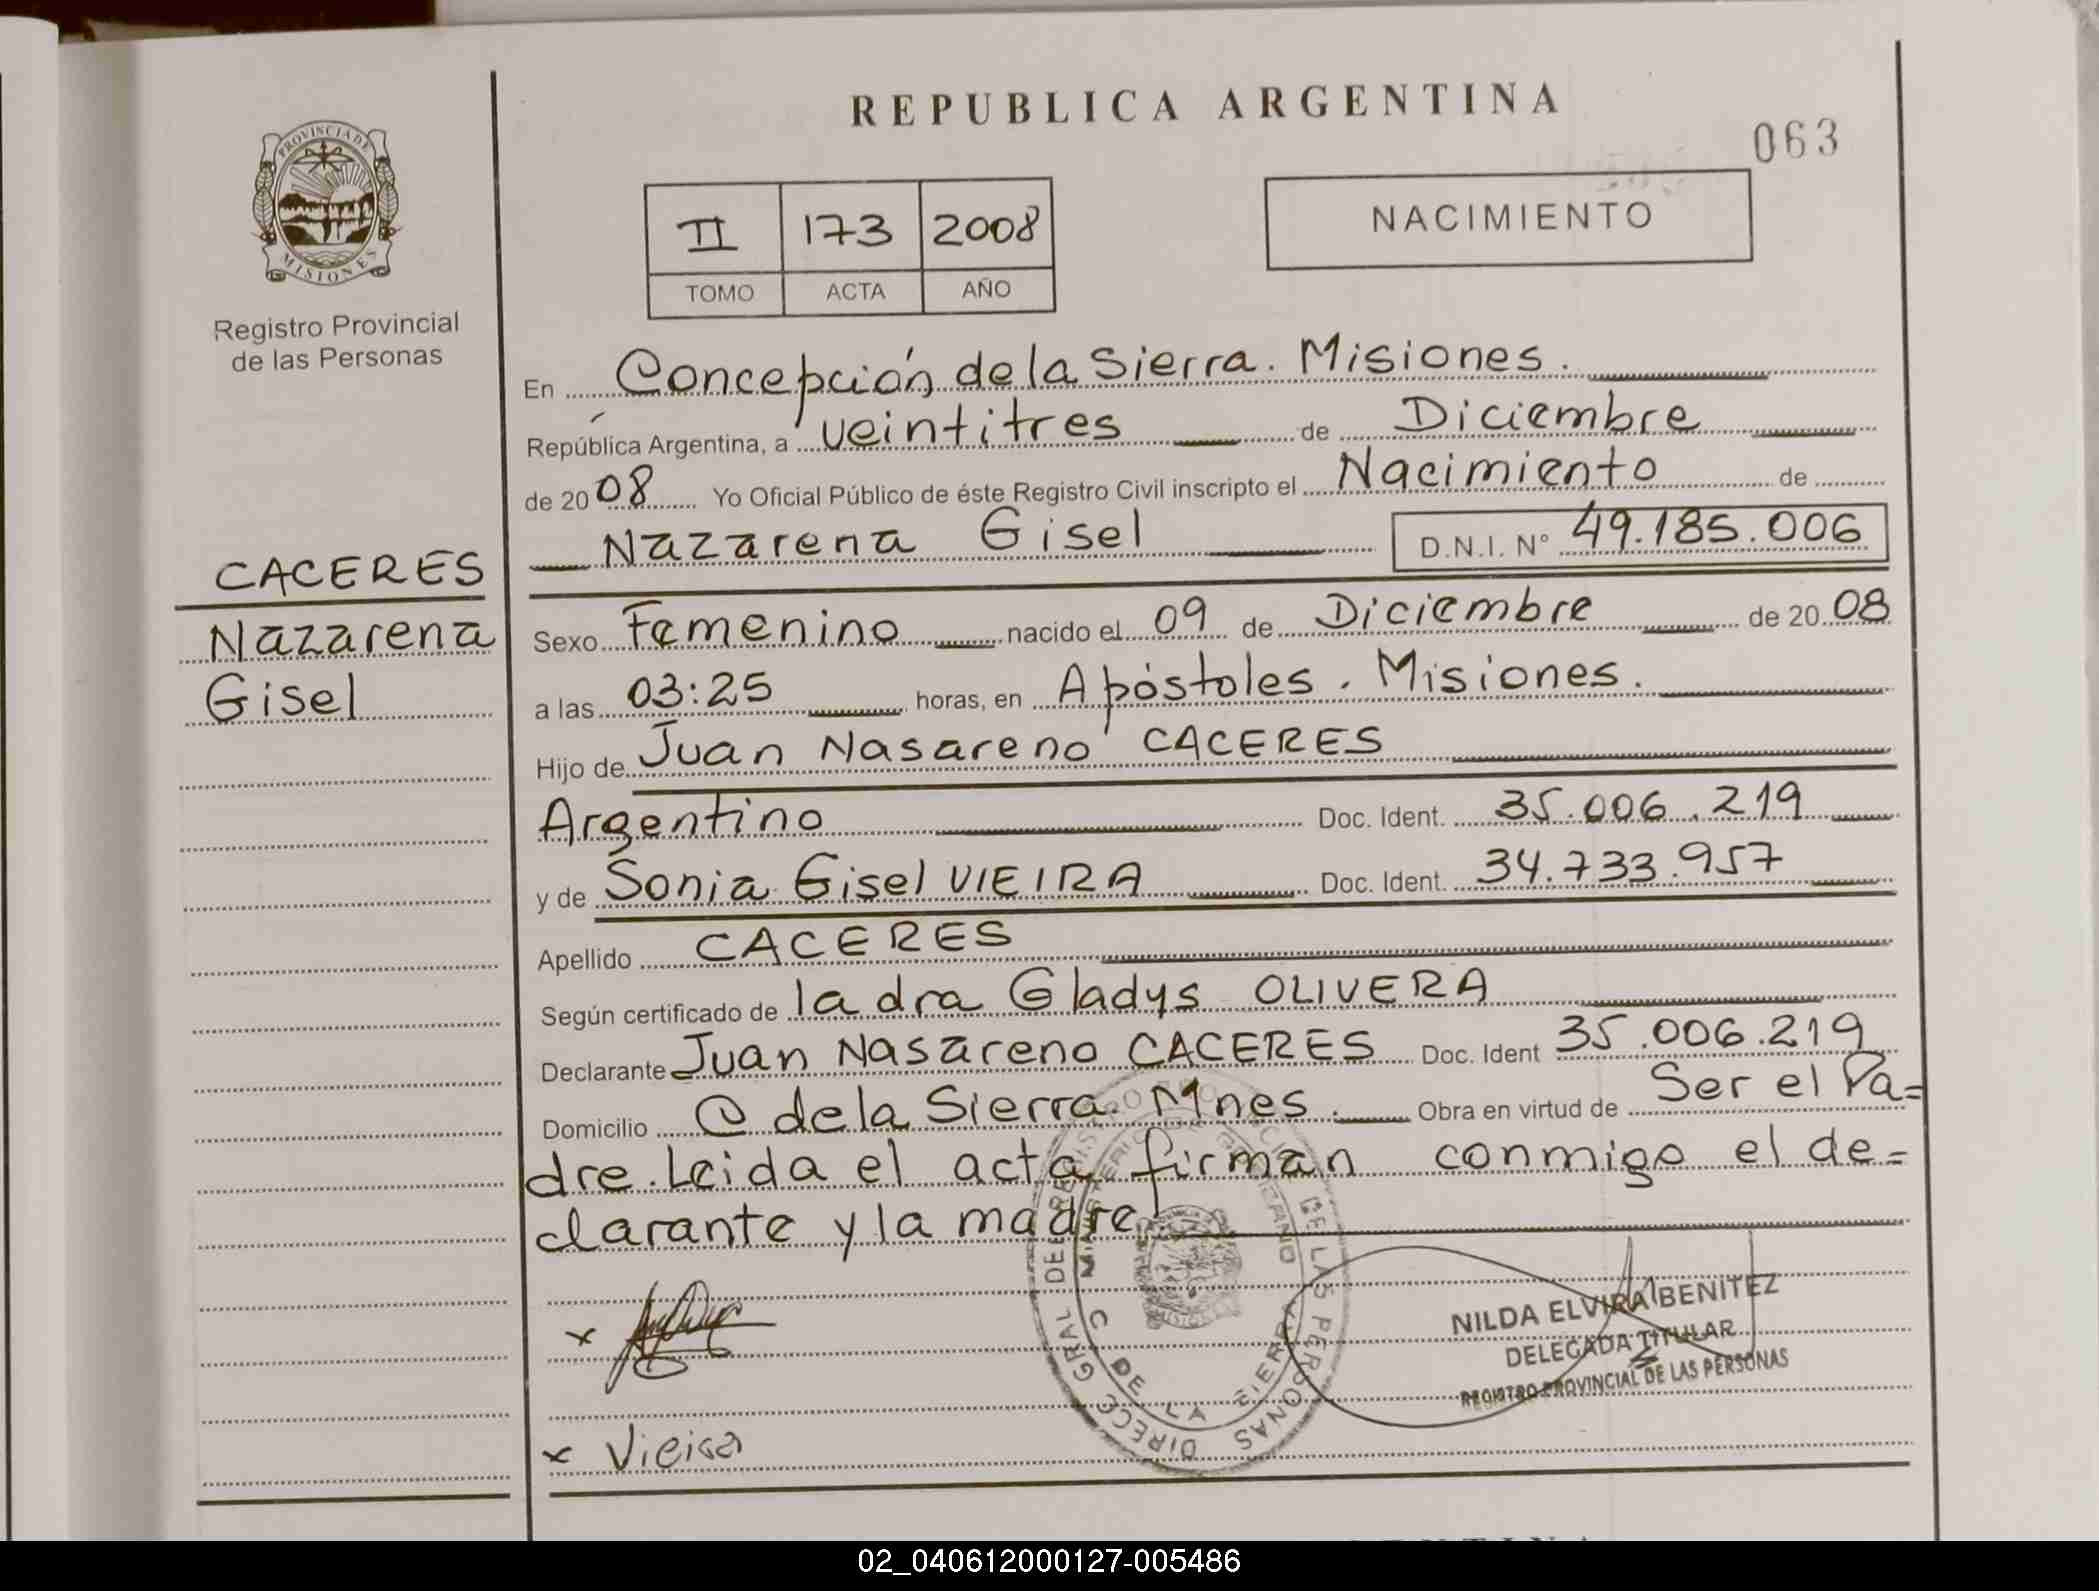 REPUBLICA ARGENTINA
063
PROVINCIA DE
MISIONES
Registro Provincial
de las Personas
II 173 2008
TOMO ACTA AÑO
NACIMIENTO
En Concepción de la Sierra. Misiones.
República Argentina, a veintitres de Diciembre
de 2008 Yo Oficial Público de éste Registro Civil inscripto el Nacimiento de
Nazarena Gisel D.N.I. N° 49.185.006
CACERES
Nazarena
Gisel
Sexo Femenino nacido el 09 de Diciembre de 2008
a las 03:25 horas, en Apóstoles. Misiones.
Hijo de Juan Nasareno CACERES
Argentino Doc. Ident. 35.006.219
y de Sonia Gisel VIEIRA Doc. Ident. 34.733.957
Apellido CACERES
Según certificado de la dra Gladys OLIVERA
Declarante Juan Nasareno CACERES Doc. Ident 35.006.219
Domicilio C de la Sierra. Mnes. Obra en virtud de Ser el Pa=
dre. Leida el acta firman conmigo el de=
clarante y la madre.
NILDA ELVIRA BENITEZ
DELEGADA TITULAR
REGISTRO PROVINCIAL DE LAS PERSONAS
x
x Vieira
C DE LA SIERRA
02_040612000127-005486